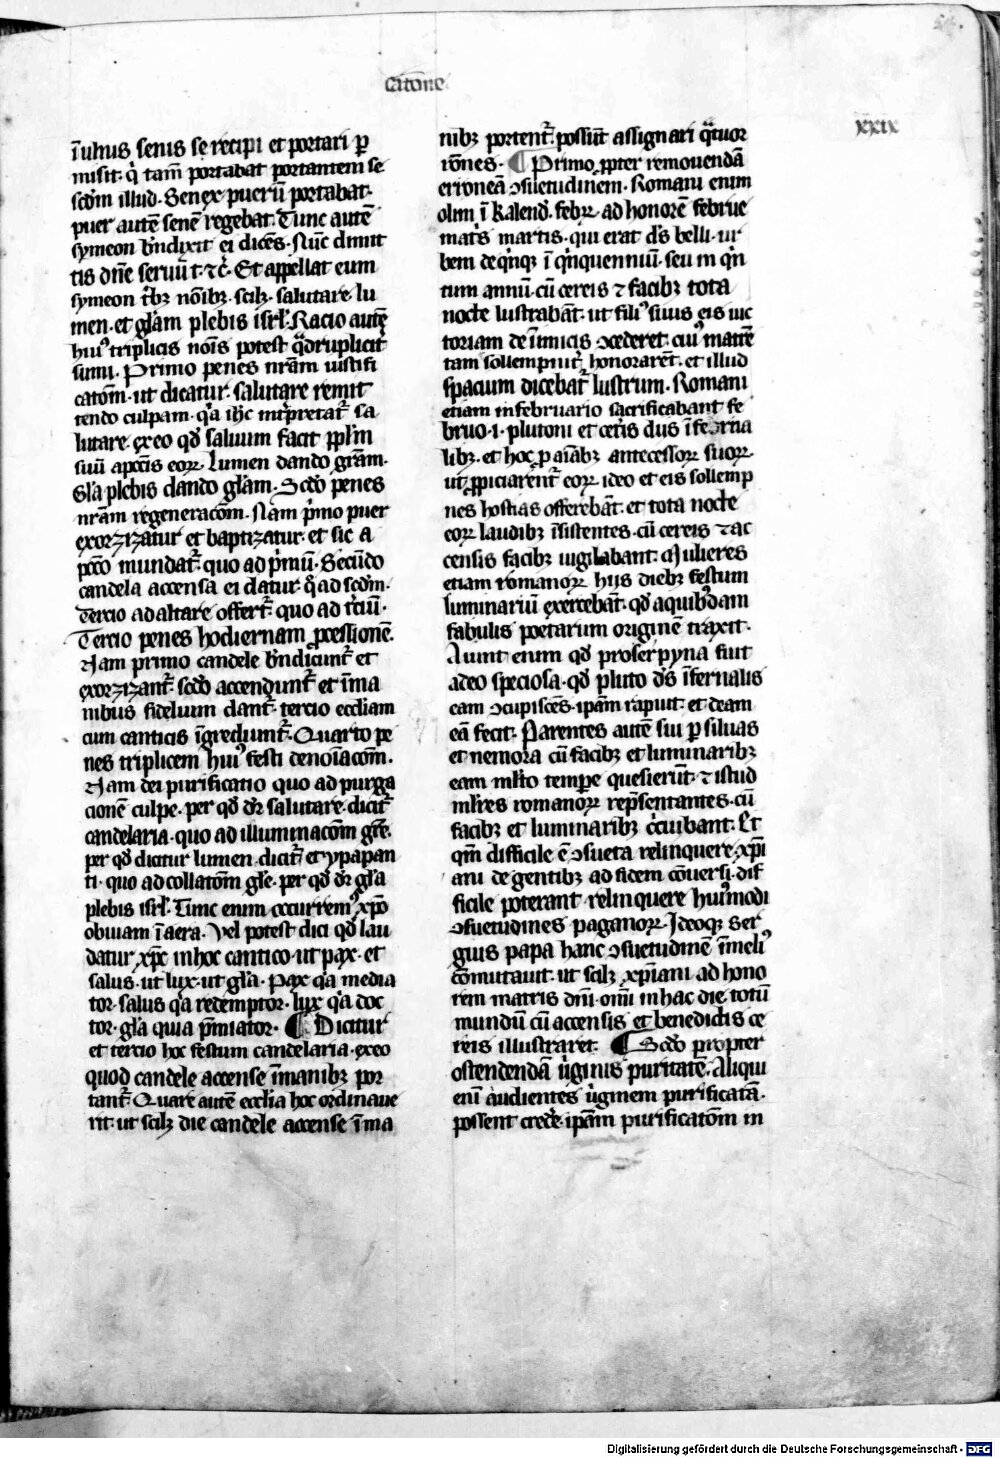 catōne
xxix
ī ulnis senis se recipi et portari ꝑ
misit. q̇ tam̄ portabat portantem se
scd̓m illud. Senex pueꝝ̄ portabat.
puer autē senē regebat. Tunc autē
symeon bn̄dixit ei dicēs. Nūc dimit
tis dn̄e seruū t. ⁊c̓. Et appellat eum
symeon tͥbꝫ noībꝫ. scilꝫ. salutare. lu
men. et gl̓am plebis isrl̓. Racio autē
huiꝰ triplicis noīs potest qͣdruplicit̓
sumi. Primo penes nr̄am iustifi
catōm. ut dicatur. salutare remit
tendo culpam. qͣa ih̓c int̓pretat̓ sa
lutare. ex eo qd̓ saluum facit ppl̓m
suū a pccīs eoꝝ. Lumen dando grām.
Gl̓a plebis dando gl̓am. Scd̓o penes
nr̄am regeneracōm. Nam pͥmo puer
exorzizatur et baptizatur. et sic a
pccō mundat̓. quo ad pͥmū. Secūdo
candela accensa ei datur. qͦ ad scd̓m.
Tercio ad altare offert̓. quo ad tͨciū.
Tercio penes hodiernam ꝓcessionē.
Nam primo candele bn̄dicunt̓ et
exorzizant̓. scd̓o accendunt̓ et ī ma
nibus fidelium dant̓. tercio eccliam
cum canticis īgrediunt̓. Quarto pe
nes triplicem huiꝰ festi denoīacōm.
Nam dei purificatio quo ad purga
cionē culpe. per qd̓ dr̄ salutare. dicit̓
candelaria. quo ad illuminacōm grē.
per qd̓ dicitur lumen. dicit̓ et ypapan
ti. quo ad collatōm gl̓e. per qd̓ dr̄ gl̓a
plebis isrl̓. Tunc enim occurremꝰ xp̄o
obuiam ī aera. Vel potest dici qd̓ lau
datur xp̄c in hoc cantico. ut pax. et
salus. ut lux. ut gl̓a. Pax qͣa media
tor. salus qͣa redemptor. lux qͣa doc
tor. gl̓a quia p̄miator. ¶ Dicitur
et tercio hoc festum candelaria. ex eo
quod candele accense ī manibꝫ por
tant̓. Quare autē ecclia hoc ordinaue
rit. ut scilꝫ die candele accense ī ma
nibꝫ portent̓. possūt assignari qͣtuor
rōnes. ¶ Primo ꝓpter remouendā
erroneā ↄsuetudinem. Romani enim
olim ī kalend̓. febꝝ. ad honorē februe
mat̓s martis. qui erat d̓s belli. ur
bem de qͥnqꝫ ī qͥnquenniū. seu in qͥn
tum annū. cū cereis ⁊ facibꝫ tota
nocte lustrabāt. ut filiꝰ suus eis uic
toriam de īmicis ↄcederet. cuiꝰ matrē
tam sollempnit̓ honorarēt. et illud
spacium dicebat̓ lustrum. Romani
etiam in februario sacrificabant fe
bruo .i. plutoni et cet̓is diis īferna
libꝫ. et hoc ꝑ aīabꝫ antecessoꝝ suoꝝ.
ut ꝓpiciarent̓ eoꝝ. ideo et eis sollemp
nes hostias offerebāt. et tota nocte
eoꝝ laudibꝫ īsistentes. cū cereis ⁊ ac
censis facibꝫ uigilabant. Mulieres
etiam romanoꝝ hijs diebꝫ festum
luminariū exercebāt. qd̓ a quibꝰdam
fabulis poetarum originē traxit.
Aiunt enim qd̓ proserpyna fuit
adeo speciosa. qd̓ pluto d̓s īfernalis
eam ↄcupiscēs. ipām rapuit. et deam
eā fecit. Parentes autē sui ꝑ siluas
et nemora cū facibꝫ et luminaribꝫ
eam ml̓to tempe quesierūt. ⁊ istud
ml̓ieres romanoꝝ rep̓sentantes. cū
facibꝫ et luminaribꝫ cͥcuibant. Et
qm̄ difficile ē ↄsueta relinquere. xp̄i
ani de gentibꝫ ad fidem cōuersi. dif
ficile poterant relinquere huiꝰmodi
ↄsuetudines paganoꝝ. Ideoqꝫ ser
gius papa hanc ↄsuetudinē ī meliꝰ
cōmutauit. ut scilꝫ xp̄iani ad hono
rem matris dn̄i. om̄i in hac die. totū
mundū cū accensis et benedictis ce
reis illustraret. ¶ Scd̓o propter
ostendendā uͥginis puritatē. Aliqui
enī audientes uͥginem purificatā.
possent crede̓. ipām purificatōm in
Digitalisierung gefördert durch die Deutsche Forschungsgemeinschaft - DFG